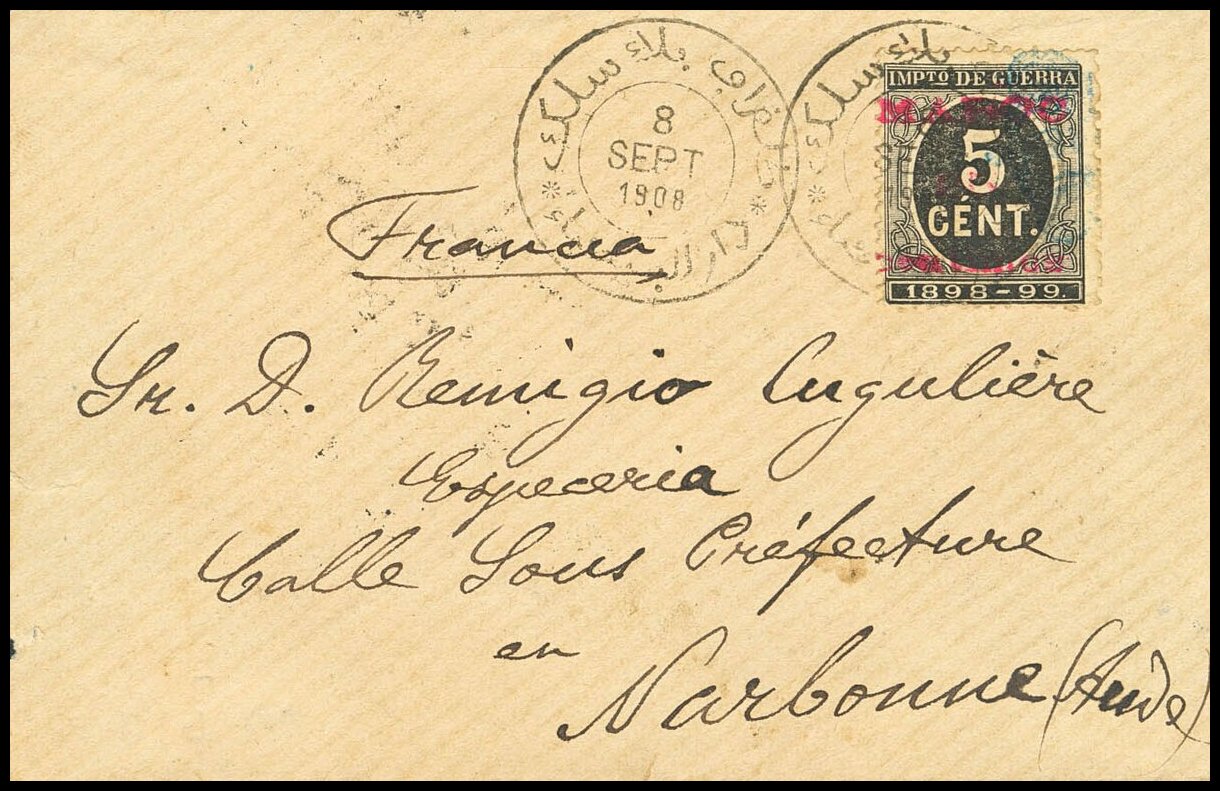 IMPTO DE GUERRA
5
CÉNT.
1898-99.
تلغراف بلا سلك
8
SEPT
1908
Francia
Sr. D. Remigio Cugulière
Especeria
Calle Sous Préfecture
en
Narbonne (Aude)